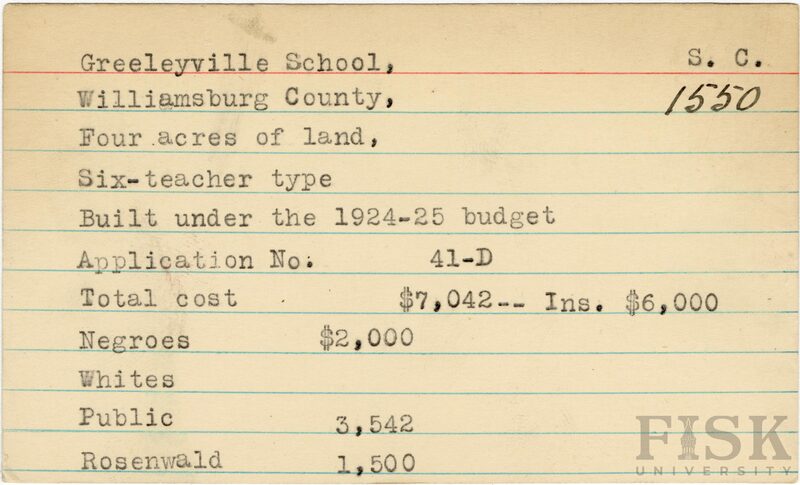 Greeleyville School, S. C.
Williamsburg County, 1550
Four acres of land,
Six-teacher type
Built under the 1924-25 budget
Application No. 41-D
Total cost $7,042-- Ins. $6,000
Negroes $2,000
Whites
Public 3,542
Rosenwald 1,500
FISK
UNIVERSITY